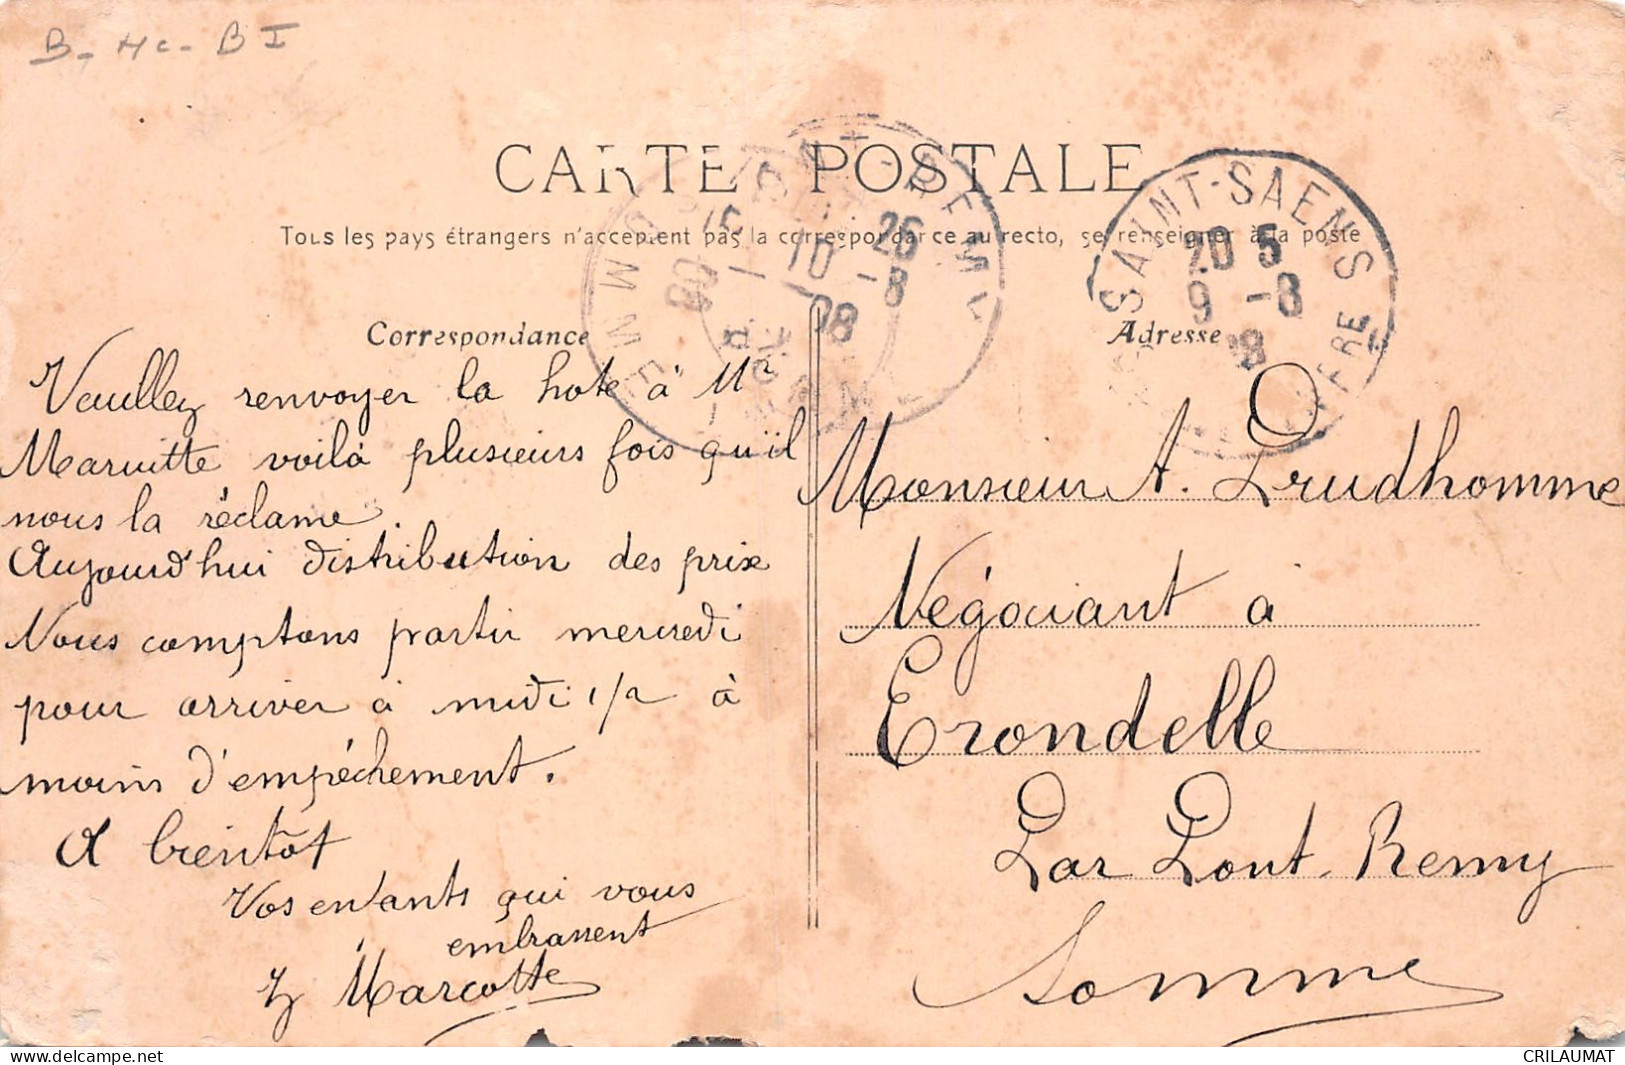 B - Hc - B I
CARTE POSTALE
Tous les pays étrangers n'acceptent pas la correspondance au recto, se renseigner à la poste
SAINT-SAENS
20 5
9 -8
08
10 26
10 -8
08
SOMME
Correspondance
Veuillez renvoyer la hote à Mr
voilà plusieurs fois qu'il
nous la réclame.
Aujourd'hui distribution des prix
Nous comptons partir mercredi
pour arriver à midi 1/2 à
moins d'empêchement.
A bientôt
Vos enfants qui vous
embrassent
Marcotte
Adresse
Monsieur A. Prudhomme
Négociant à
Erondelle
Par Pont-Remy
Somme
delcampe.net
CRILAUMAT